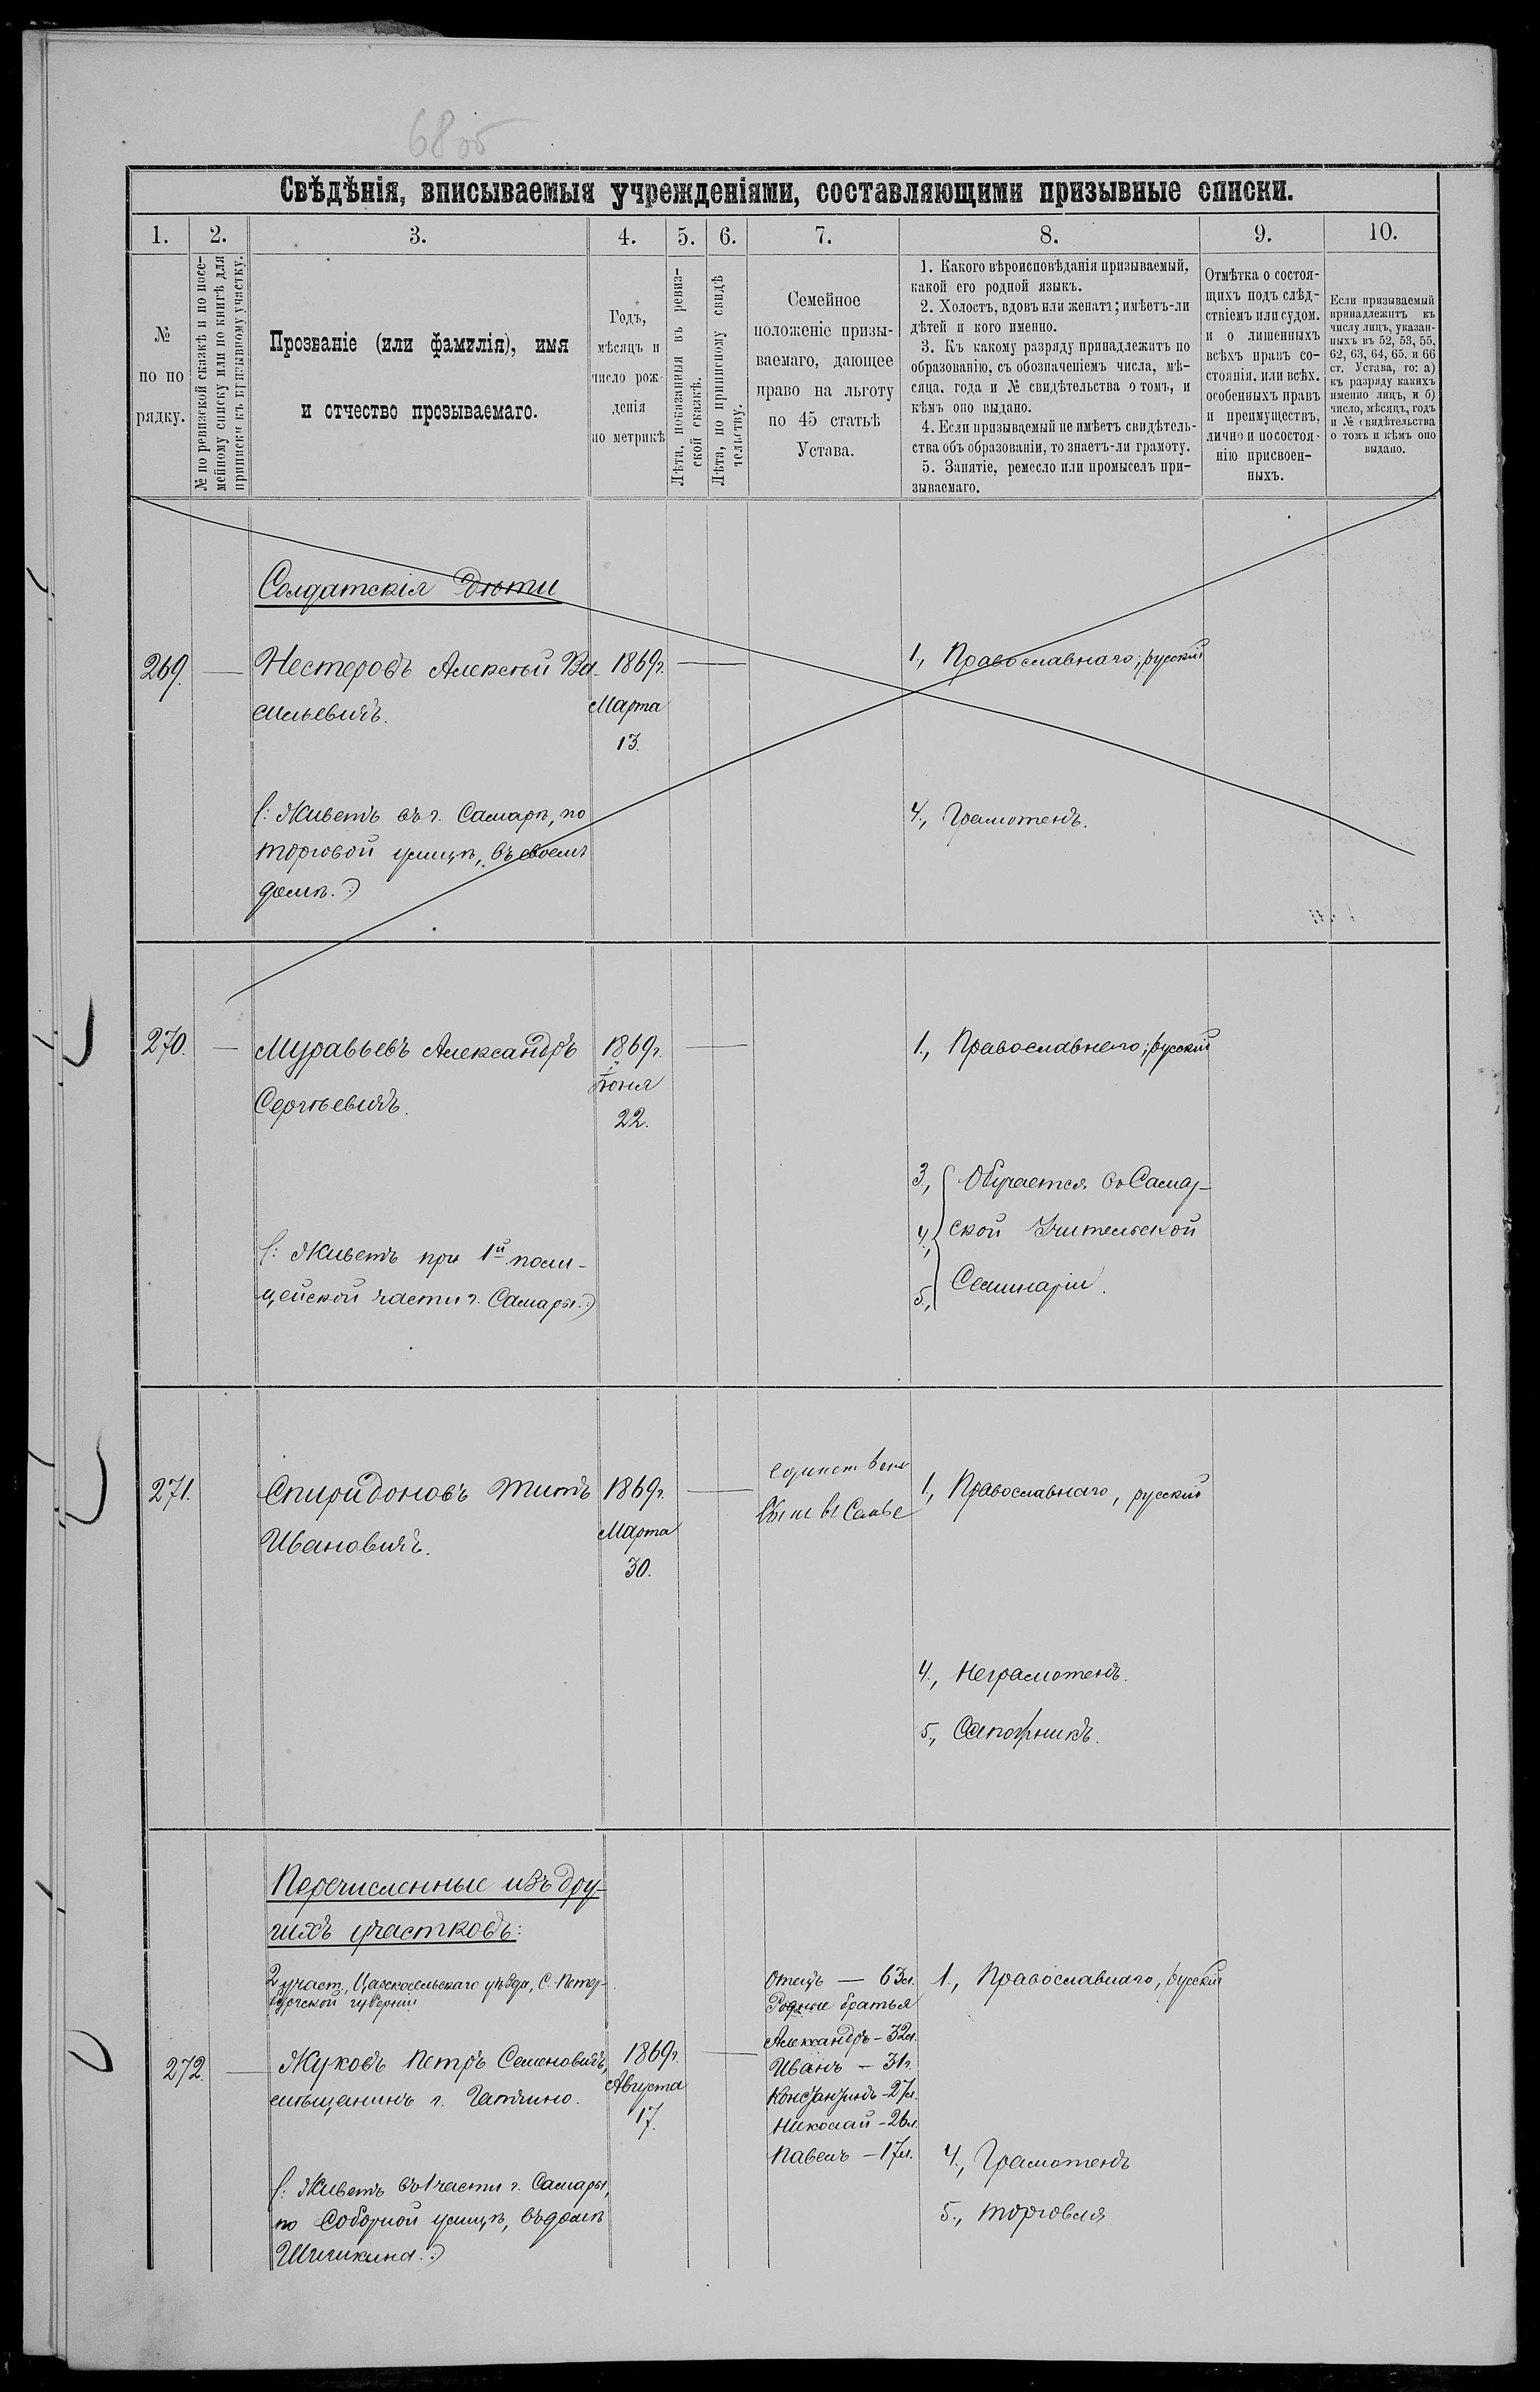 68об
Свѣдѣнія, вписываемыя учрежденіями, составляющими призывные списки.
1.
2.
3.
4.
5.
6.
7.
8.
9.
10.
№
по по
рядку.
№ по ревизской сказкѣ и по посе-
мейному списку или по книгѣ для
приписки къ призывному участку.
Прозваніе (или фамилія), имя
и отчество прозываемаго.
Годъ,
мѣсяцъ и
число рож-
денія
по метрикѣ
Лѣта, показанныя въ ревиз-
ской сказкѣ.
Лѣта, по приписному свидѣ
тельству.
Семейное
положеніе призы-
ваемаго, дающее
право на льготу
по 45 статьѣ
Устава.
1. Какого вѣроисповѣданія призываемый,
какой его родной языкъ.
2. Холостъ, вдовъ или женатъ; имѣетъ-ли
дѣтей и кого именно.
3. Къ какому разряду принадлежитъ по
образованію, съ обозначеніемъ числа, мѣ-
сяца, года и № свидѣтельства о томъ, и
кѣмъ оно выдано.
4. Если призываемый не имѣетъ свидѣтель-
ства объ образованіи, то знаетъ-ли грамоту.
5. Занятіе, ремесло или промыселъ при-
зываемаго.
Отмѣтка о состоя-
щихъ подъ слѣд-
ствіемъ или судом.
и о лишенныхъ
всѣхъ правъ со-
стоянія, или всѣх.
особенныхъ правъ
и преимуществъ,
лично и по состоя-
нію присвоен-
ныхъ.
Если призываемый
принадлежитъ къ
числу лицъ, указан-
ныхъ въ 52, 53, 55,
62, 63, 64, 65. и 66
ст. Устава, то: а)
къ разряду какихъ
именно лицъ, и б)
число, мѣсяцъ, годъ
и № свидѣтельства
о томъ и кѣмъ оно
выдано.
Солдатскія Дѣти
269. — Нестеровъ Алексѣй Ва- 1869г. — 1., Православнаго; русскій
сильевичъ. Марта
13.
(: Живетъ въ г. Самарѣ, по 4., Грамотенъ.
торговой улицѣ, въ своемъ
домѣ. :)
270. — Муравьевъ Александръ 1869г. — 1., Православнаго; русскій
Сергѣевичъ. Іюня
22.
3., Обучается въ Самар-
4., ской Учительской
5., Семинаріи.
(: Живетъ при 1й поли-
цейской части г. Самары. :)
271. Спиридоновъ Титъ 1869г. — 1., Православнаго, русскій
Ивановичъ. Марта
30.
4., Неграмотенъ.
5., Сапожникъ.
Перечисленные изъ дру-
гихъ участковъ:
2 участ, Царскосельскаго уѣзда, С. Петер-
бургской губерніи
272. — Жуковъ Петръ Семеновичъ, 1869г. —
мѣщанинъ г. Гатчино. Августа
17.
(: Живетъ въ 1 части г. Самары,
по Соборной улицѣ, въ домѣ
Шишкина. :)
Отецъ — 63л.
Родные братья
Александръ – 32л.
Иванъ – 31г.
Константинъ – 27л.
Николай – 26л.
Павелъ – 17л.
1., Православнаго, русскій
4., Грамотенъ
5., торговля